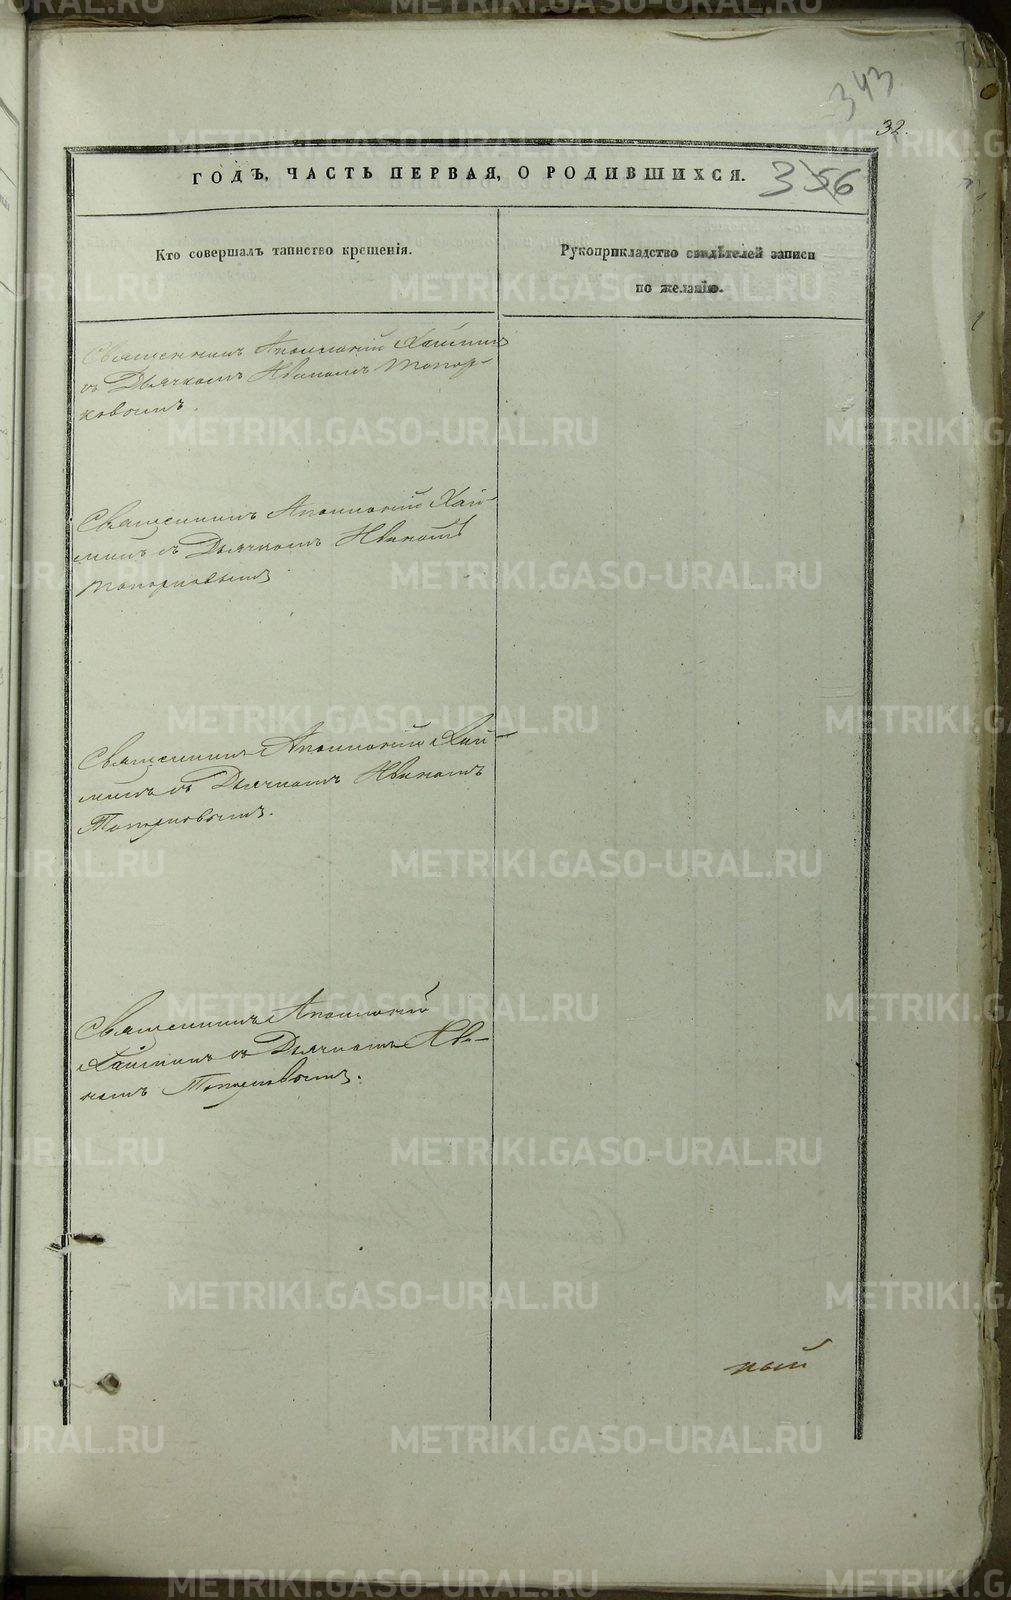 343
32.
ГОДЪ, ЧАСТЬ ПЕРВАЯ, О РОДИВШИХСЯ. 356
Кто совершалъ таинство крещенія.
Рукоприкладство свидѣтелей записи
по желанію.
Священникъ Аполлоній Хаймин
съ Дьячкомъ Иваномъ Топор-
ковымъ.
Священникъ Аполлоній Хай-
минъ съ Дьячкомъ Иваномъ
Топорковымъ
Священникъ Аполлоній Хай-
минъ съ Дьячкомъ Иваномъ
Топорковымъ.
Священникъ Аполлоній
Хайминъ съ Дьячкомъ Ива-
номъ Топорковымъ.
ный
METRIKI.GASO-URAL.RU